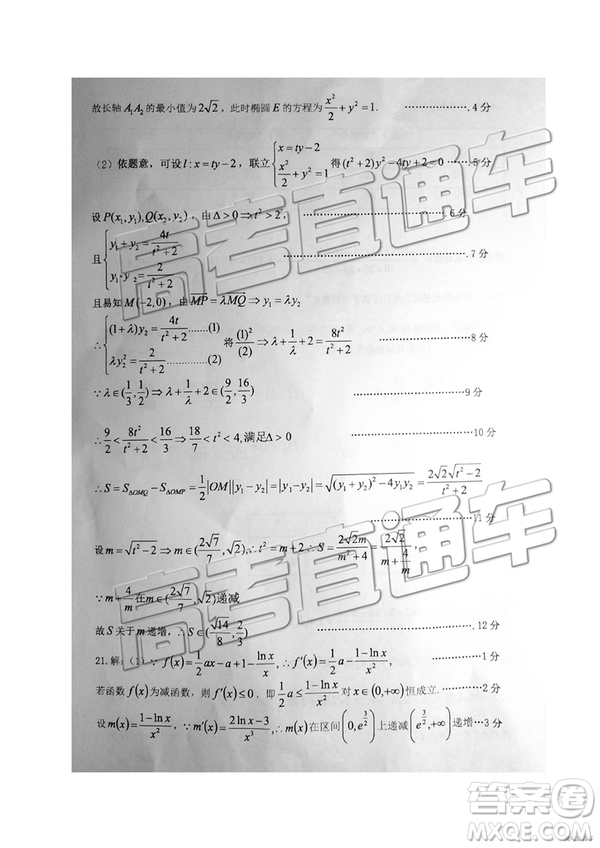 故长轴 A₁A₂ 的最小值为 2√2，此时椭圆 E 的方程为 x²/2 + y² = 1. ………………4 分
（2）依题意，可设 l : x = ty − 2，联立 { x = ty − 2 ; x²/2 + y² = 1 得 (t² + 2)y² − 4ty + 2 = 0 ……5分
设 P(x₁, y₁), Q(x₂, y₂)，由 Δ > 0 ⇒ t² > 2， ………………6 分
且 { y₁ + y₂ = 4t/(t² + 2) ; y₁ · y₂ = 2/(t² + 2) ………………7 分
且易知 M(−2,0)，由 MP = λMQ ⇒ y₁ = λy₂
∴ { (1 + λ)y₂ = 4t/(t² + 2) ……(1) ; λy₂² = 2/(t² + 2) ……(2) 将 (1)²/(2) ⇒ λ + 1/λ + 2 = 8t²/(t² + 2) ………………8 分
∵ λ ∈ (1/3, 1/2) ⇒ λ + 1/λ + 2 ∈ (9/2, 16/3) ………………9 分
∴ 9/2 < 8t²/(t² + 2) < 16/3 ⇒ 18/7 < t² < 4, 满足 Δ > 0 ………………10 分
∴ S = S△OMQ − S△OMP = 1/2 |OM||y₁ − y₂| = |y₁ − y₂| = √((y₁ + y₂)² − 4y₁y₂) = 2√2 √(t² − 2)/(t² + 2)
………………11 分
设 m = √(t² − 2) ⇒ m ∈ (2√7/7, √2), ∴ t² = m + 2 ∴ S = 2√2m/(m² + 4) = 2√2/(m + 4/m),
∵ m + 4/m 在 m ∈ (2√7/7, √2) 递减
故 S 关于 m 递增，∴ S ∈ (√14/8, 2/3) ………………12 分
21.解：（1）∵ f(x) = 1/2 ax − a + 1 − ln x/x, ∴ f′(x) = 1/2 a − (1 − ln x)/x² ………………1 分
若函数 f(x) 为减函数，则 f′(x) ≤ 0，即 1/2 a ≤ (1 − ln x)/x² 对 x ∈ (0,+∞) 恒成立. ……2 分
设 m(x) = (1 − ln x)/x², ∵ m′(x) = (2 ln x − 3)/x³, ∴ m(x) 在区间 (0, e^(3/2)) 上递减 (e^(3/2), +∞) 递增 …3 分
高考直通车
高考直通车
高考直通车
答案圈
MXQE.COM